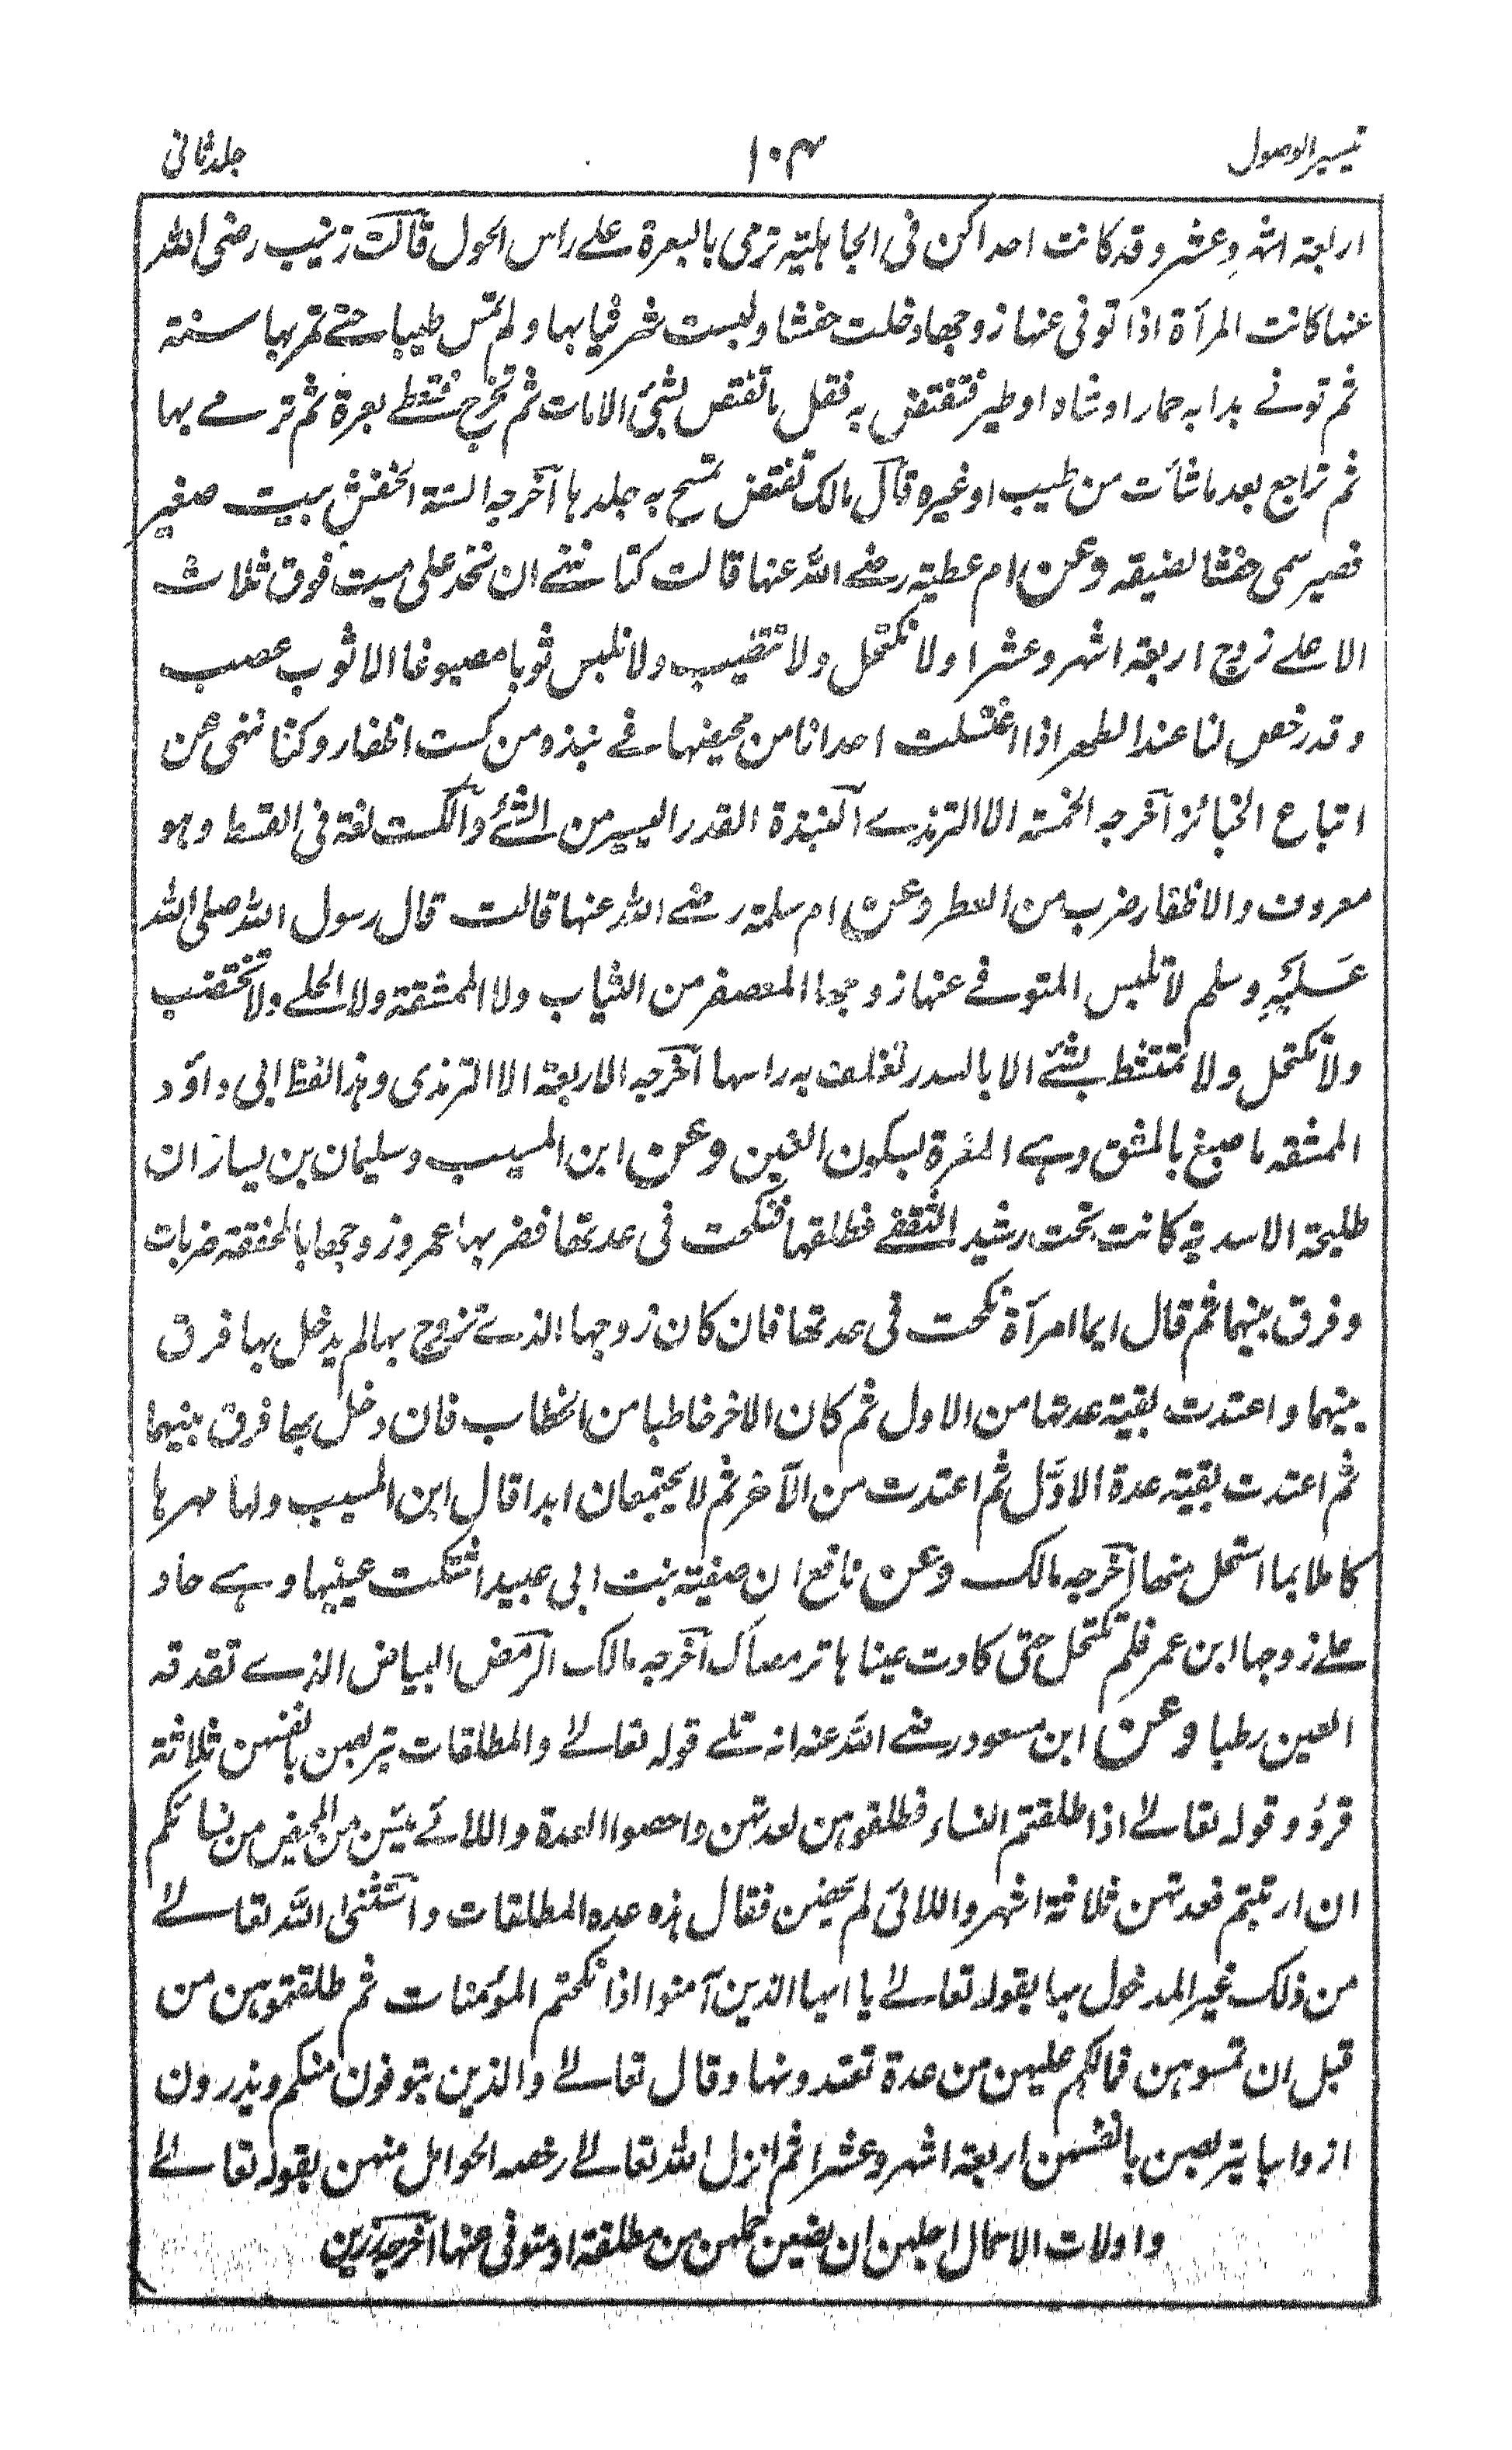 تيسير الوصول ١٠٤ جلد ثانى
اربعة اشهر وعشر وقد كانت احداكن فى الجاهلية ترمى بالبعرة على راس الحول قالت زينب رضى الله
عنها كانت المرآة اذا توفى عنها زوجها دخلت حفشا ولبست شر ثيابها ولم تمس طيبا حتى تمر بها سنة
ثم توتى بدابه حمار او شاه او طير فتفتض به فقل ما تفتض بشئ الا مات ثم تخرج فتعطى بعرة ثم ترمے بها
ثم تراجع بعد ما شأت من طيب او غيره قال مالك تفتض تمسح به جلدها اخرجه الستة الحفش بيت صغير
قصير سمى حفشا لضيقه وعن ام عطية رضے الله عنها قالت كنا ننهے ان نحد على ميت فوق ثلاث
الا علے زوج اربعة اشهر وعشرا ولا نكتحل ولا نتطيب ولا نلبس ثوبا مصبوغا الا ثوب عصب
وقد رخص لنا عند الطهر اذا اغتسلت احدانا من محيضها فے نبذه من كست اظفار وكنا ننهى عن
اتباع الجنائز اخرجه الخمسة الا الترمذے النبذة القدر اليسير من الشئے والكست لغة فى القسط وهو
معروف والاظفار ضرب من العطر وعن ام سلمة رضے الله عنها قالت قال رسول الله صلى الله
عَلَيْهِ وسلم لا تلبس المتوفے عنها زوجها المعصفر من الثياب ولا الممشقة ولا الحلے ولا تختضب
ولا تكتحل ولا تمتشط بشئے الا بالسدر تغلف به راسها اخرجه الاربعة الا الترمذى وهذا لفظ ابى داوٗد
الممشقه ما صبغ بالمشق وهے المغرة بسكون الغين وعن ابن المسيب وسليمان بن يسار ان
طليحة الاسدية كانت تحت رشيد الثقفے فطلقها فنكحت فى عدتها فضربها عمر وزوجها بالمخفقة ضربات
وفرق بينهما ثم قال ايما امرآة نكحت فى عدتها فان كان زوجها الذے تزوج بها لم يدخل بها فرق
بينهما واعتدت بقية عدتها من الاول ثم كان الاخر خاطبا من الخطاب فان دخل بها فرق بينهما
ثم اعتدت بقية عدة الاوّل ثم اعتدت من الآخر ثم لا يجتمعان ابدا قال ابن المسيب ولها مهرها
كاملا بما استحل منها اخرجه مالك وعن نافع ان صفية بنت ابى عبيد اشتكت عينيها وهے حاد
علے زوجها ابن عمر فلم تكتحل حتى كادت عيناها ترمصان اخرجه مالك الرمص البياض الذے تقذفه
العين رطبا وعن ابن مسعود رضے الله عنه انه تلے قوله تعالے والمطلقات يتربصن بانفسهن ثلاثة
قروٗ وقوله تعالے اذا طلقتم النساء فطلقوهن لعدتهن واحصوا العدة واللائے يئسن من المحيض من نسائكم
ان ارتبتم فعدتهن ثلاثة اشهر واللائى لم يحضن فقال هذه عده المطلقات واستثنى الله تعالے
من ذلك غير المدخول بها بقوله تعالے يا ايها الذين آمنوا اذا نكحتم المؤمنات ثم طلقتموهن من
قبل ان تمسوهن فمالكم عليهن من عدة تعتدونها وقال تعالے والذين يتوفون منكم ويذرون
ازواجا يتربصن بانفسهن اربعة اشهر وعشرا ثم انزل الله تعالے رخصه الحوامل منهن بقوله تعالے
واولات الاحمال اجلهن ان يضعن حملهن من مطلقة او متوفى عنها اخرجه رزين